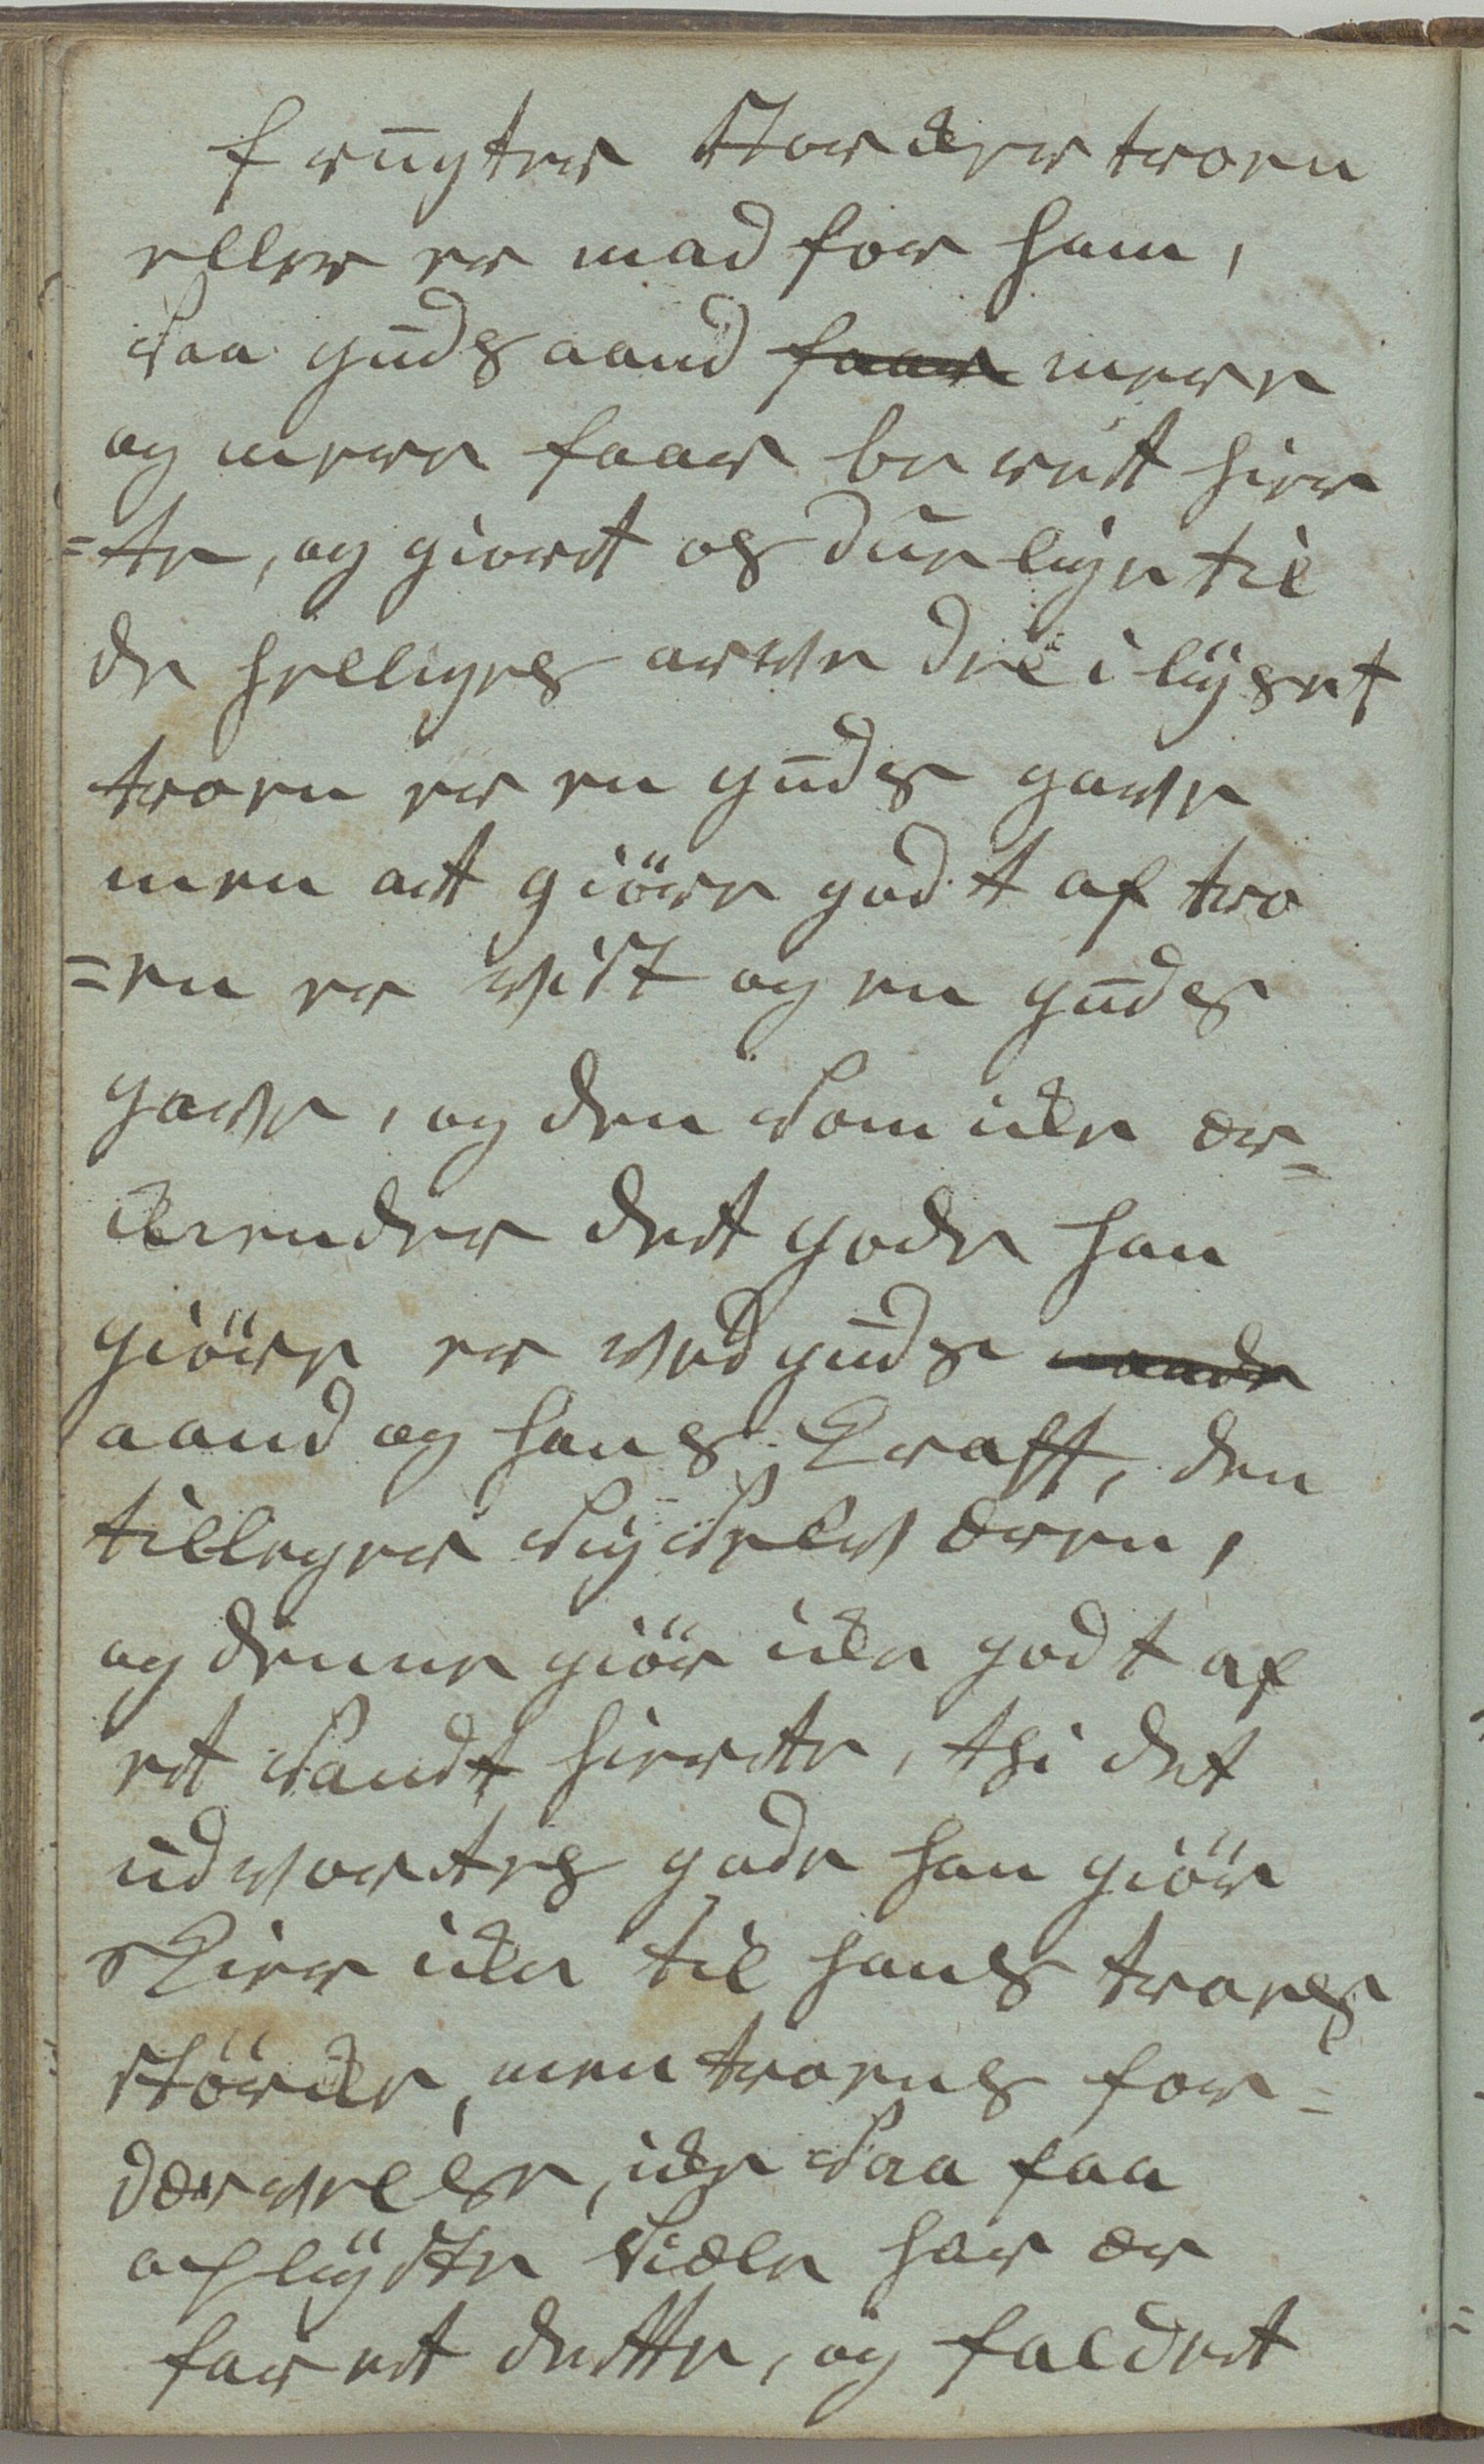 frugter Størcker troen
eller er mad for ham,
Saa guds aand faar mere
og mere faar be rett hier
=te, og giordt os duelige til
de helliges arve deel i lÿset
troen er en guds gave
men att giöre godt af tro
=en er vist og en guds
gave, og den Som icke er-
kiender dett gode han
giöre er ved guds naade
aand og hans Krafft, den
tilleger Sig Selv æren,
og denne giör icke godt af
et Sandt hierte, thi det
udvortes gode han giör
Skier icke til hans troes
störcke, men troens for-
dærvelse, icke Saa faa
oplÿste Siæle har er
faret dette, og faldet